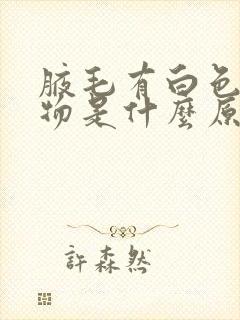 腋毛有白色
物是什麼原
許森然